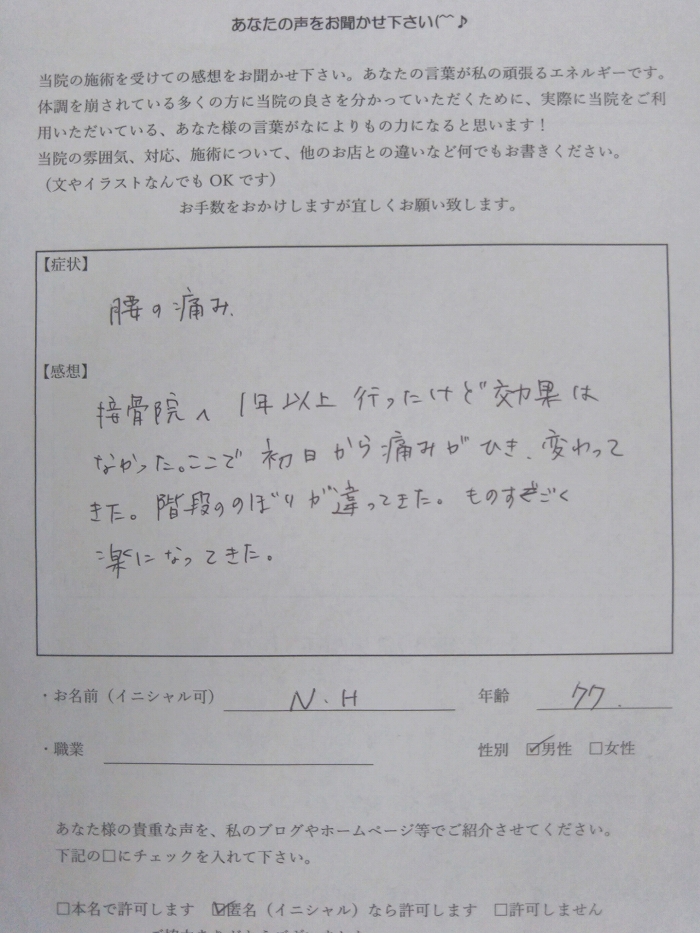 あなたの声をお聞かせ下さい(^^♪
当院の施術を受けての感想をお聞かせ下さい。あなたの言葉が私の頑張るエネルギーです。
体調を崩されている多くの方に当院の良さを分かっていただくために、実際に当院をご利
用いただいている、あなた様の言葉がなによりもの力になると思います！
当院の雰囲気、対応、施術について、他のお店との違いなど何でもお書きください。
（文やイラストなんでも OK です）
お手数をおかけしますが宜しくお願い致します。
【症状】
腰の痛み.
【感想】
接骨院へ 1年以上 行ったけど 効果は
なかった。ここで 初日から痛みがひき、変わって
きた。階段ののぼりが違ってきた。ものすごく
楽になってきた。
・お名前（イニシャル可） N.H 年齢 77.
・職業 性別 ☑男性 □女性
あなた様の貴重な声を、私のブログやホームページ等でご紹介させてください。
下記の□にチェックを入れて下さい。
□本名で許可します ☑匿名（イニシャル）なら許可します □許可しません